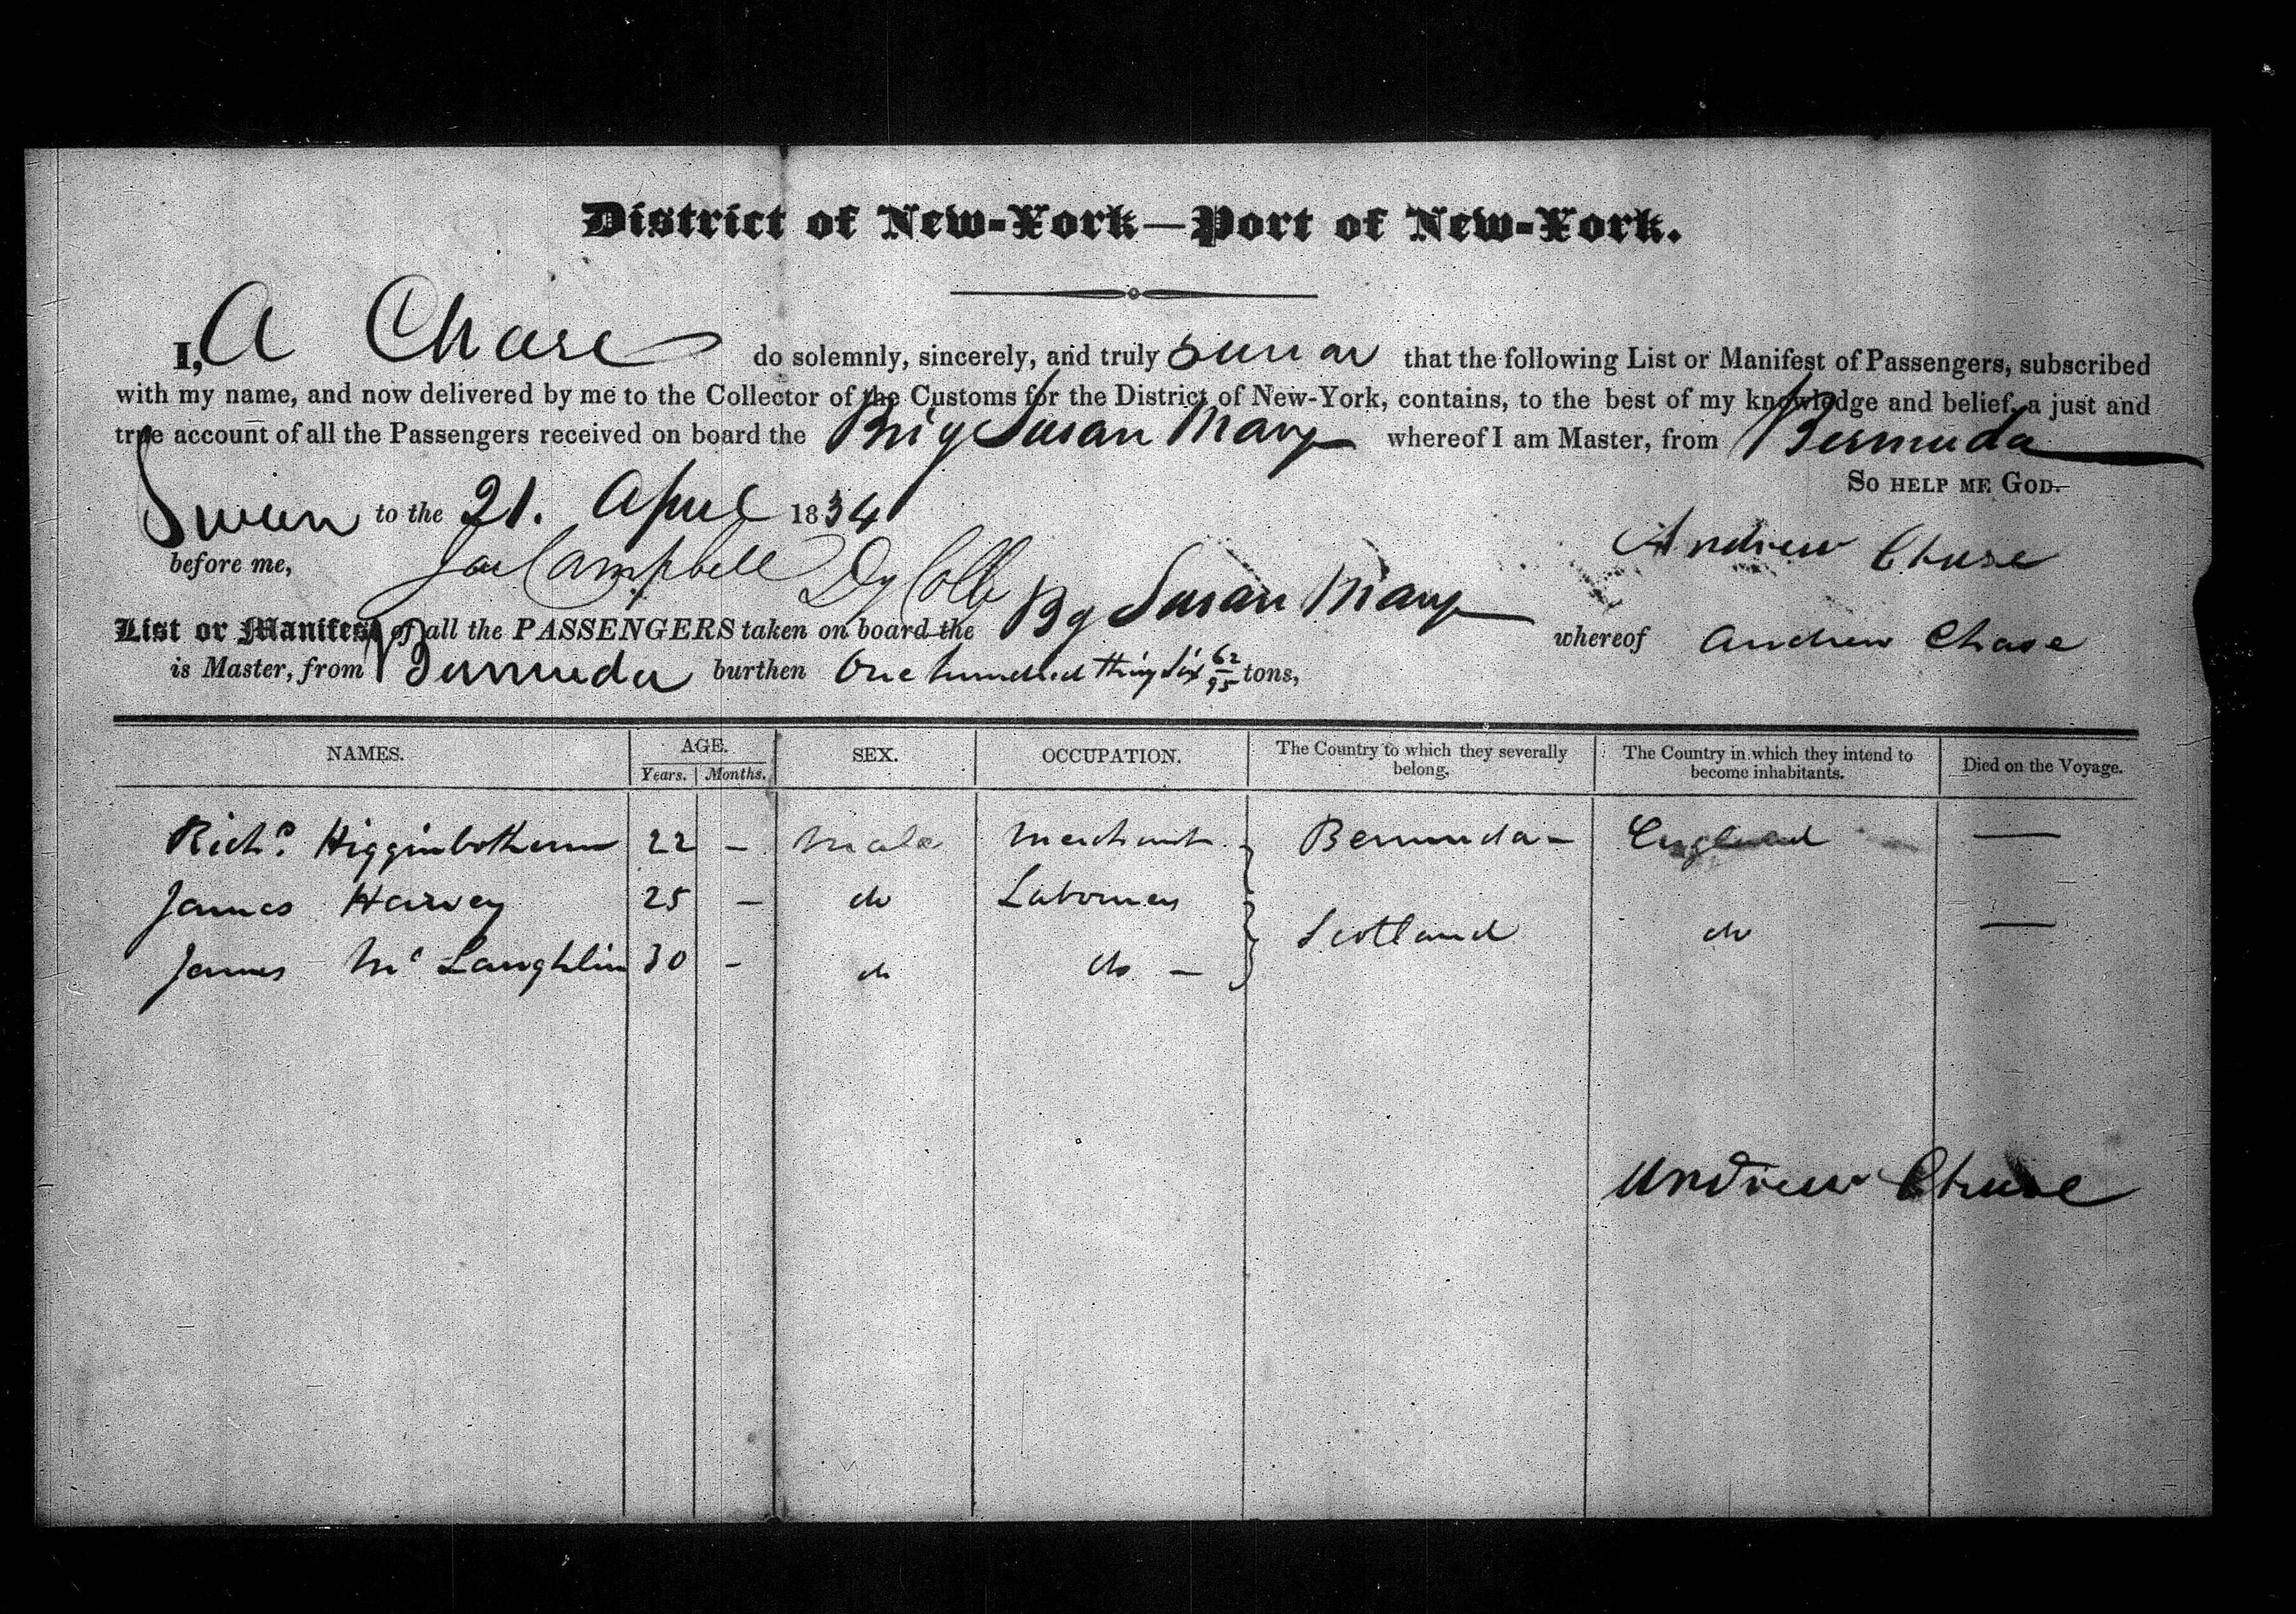 District of New-York—Port of New-York.
I, A Chase do solemnly, sincerely, and truly swear that the following List or Manifest of Passengers, subscribed
with my name, and now delivered by me to the Collector of the Customs for the District of New-York, contains, to the best of my knowledge and belief, a just and
true account of all the Passengers received on board the Brig Susan Mary whereof I am Master, from Bermuda
So help me God.
Sworn to the 21. April 1834
Andrew Chase
before me, Campbell Dy Colle
List or Manifest of all the PASSENGERS taken on board the Bg Susan Mary whereof Andrew Chase
is Master, from Bermuda burthen One hundred thirty Six 62/95 tons,
NAMES. AGE. Years. Months. SEX. OCCUPATION. The Country to which they severally belong. The Country in which they intend to become inhabitants. Died on the Voyage.
Richd. Higginbotham 22 – Male Merchant Bermuda – England —
James Harvey 25 – do Labourer
Scotland do —
James Mc Laughlin 30 – do do –
Andrew Chase